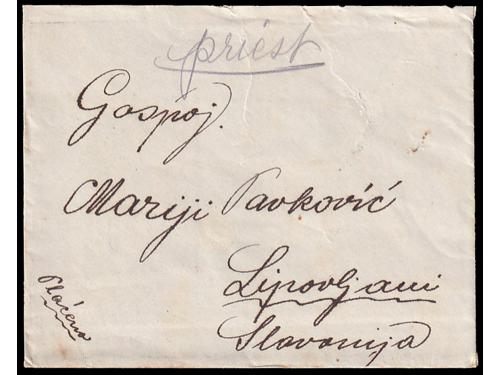 priést
Gospoj.
Mariji Pavković
Lipovljani
Slavonija
Plaćeno